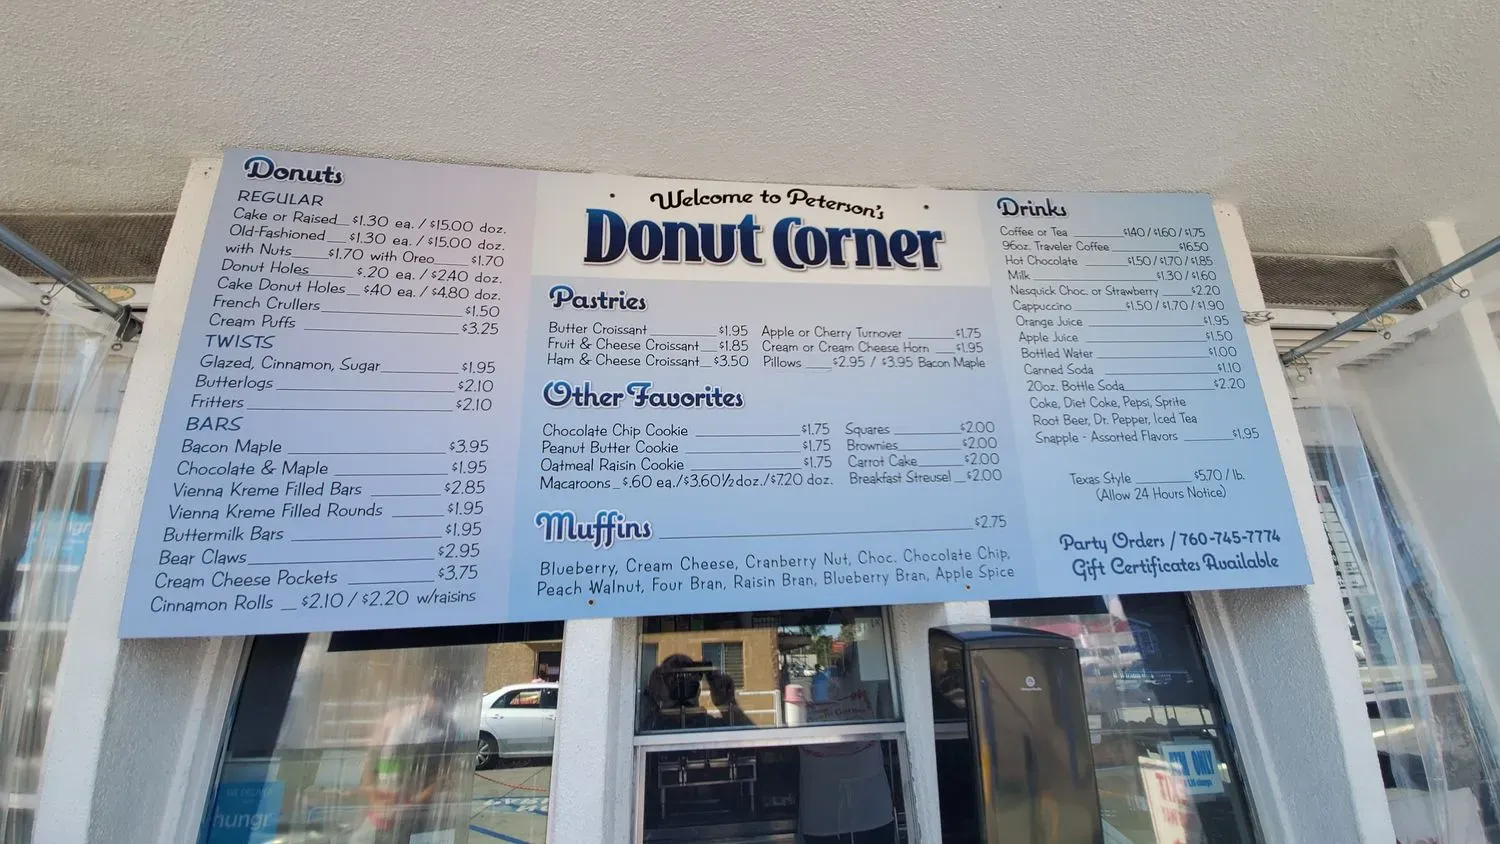 Donuts
REGULAR
Cake or Raised $1.30 ea. / $15.00 doz.
Old-Fashioned $1.30 ea. / $15.00 doz.
with Nuts $1.70 with Oreo $1.70
Donut Holes $.20 ea. / $2.40 doz.
Cake Donut Holes $.40 ea. / $4.80 doz.
French Crullers $1.50
Cream Puffs $3.25
TWISTS
Glazed, Cinnamon, Sugar $1.95
Butterlogs $2.10
Fritters $2.10
BARS
Bacon Maple $3.95
Chocolate & Maple $1.95
Vienna Kreme Filled Bars $2.85
Vienna Kreme Filled Rounds $1.95
Buttermilk Bars $1.95
Bear Claws $2.95
Cream Cheese Pockets $3.75
Cinnamon Rolls $2.10 / $2.20 w/raisins
Welcome to Peterson's
Donut Corner
Pastries
Butter Croissant $1.95
Fruit & Cheese Croissant $1.85
Ham & Cheese Croissant $3.50
Apple or Cherry Turnover $1.75
Cream or Cream Cheese Horn $1.95
Pillows $2.95 / $3.95 Bacon Maple
Other Favorites
Chocolate Chip Cookie $1.75
Peanut Butter Cookie $1.75
Oatmeal Raisin Cookie $1.75
Macaroons $.60 ea./$3.60½doz./$7.20 doz.
Squares $2.00
Brownies $2.00
Carrot Cake $2.00
Breakfast Streusel $2.00
Muffins $2.75
Blueberry, Cream Cheese, Cranberry Nut, Choc. Chocolate Chip,
Peach Walnut, Four Bran, Raisin Bran, Blueberry Bran, Apple Spice
Drinks
Coffee or Tea $1.40 / $1.60 / $1.75
96oz. Traveler Coffee $16.50
Hot Chocolate $1.50 / $1.70 / $1.85
Milk $1.30 / $1.60
Nesquick Choc. or Strawberry $2.20
Cappuccino $1.50 / $1.70 / $1.90
Orange Juice $1.95
Apple Juice $1.50
Bottled Water $1.00
Canned Soda $1.10
20oz. Bottle Soda $2.20
Coke, Diet Coke, Pepsi, Sprite
Root Beer, Dr. Pepper, Iced Tea
Snapple - Assorted Flavors $1.95
Texas Style $5.70 / lb.
(Allow 24 Hours Notice)
Party Orders / 760-745-7774
Gift Certificates Available
WE DELIVER
hungr
ONLY